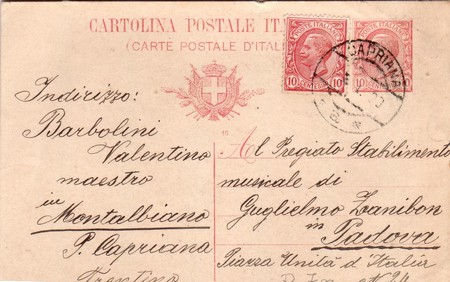 CARTOLINA POSTALE ITA
(CARTE POSTALE D'ITAL
POSTE ITALIANE
10 CENTESIMI 10
POSTE ITALIANE
10
CAPRIANA
Indirizzo:
Barbolini
Valentino
maestro
in
Montalbiano
P. Capriana
Trentino
15
Al Pregiato Stabilimento
musicale di
Guglielmo Zanibon
in
Padova
Piazza Unità d'Italia
N. 24